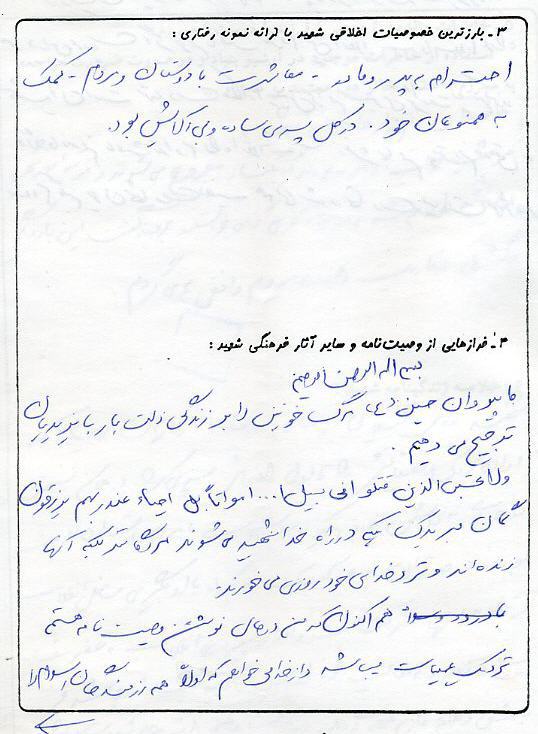 ۳ـ بارزترین خصوصیات اخلاقی شهید با ارائه نمونه رفتاری :
احترام به پدر و مادر - معاشرت با دوستان و مردم - کمک
به همنوعان خود . در کل پسری ساده و بی آلایش بود.
۴ـ فرازهایی از وصیت‌نامه و سایر آثار فرهنگی شهید :
بسم اله الرحمن الرحیم
ما پیروان حسین (ع) مرگ خونین را بر زندگی ذلت بار با یزیدیان
ترجیح می دهیم .
ولا تحسبن الذین قتلوا فی سبیل ا... امواتاً بل احیاء عند ربهم یرزقون
گمان مبرید کسانیکه در راه خدا شهید می‌شوند مرده‌اند بلکه آنها
زنده‌اند و نزد خدای خود روزی می‌خورند.
هم اکنون که من در حال نوشتن وصیت نامه هستم
نزدیک عملیات میباشد و از خدا می‌خواهم که اولاً همه رزمندگان اسلام را